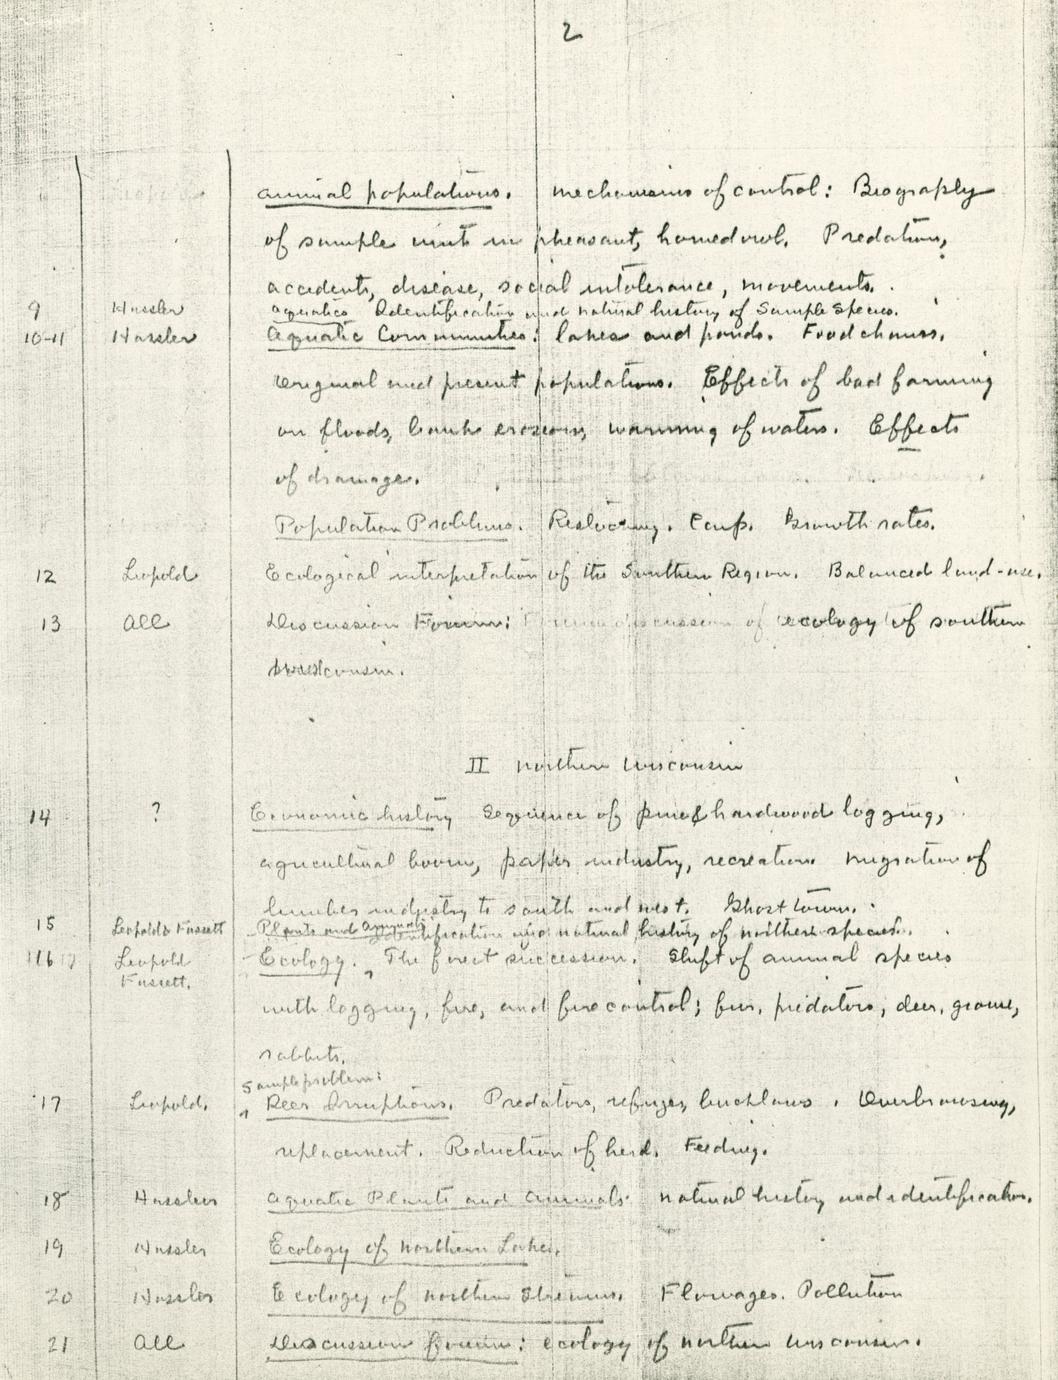 2
Animal populations. Mechanisms of control: Biography
of sample units in pheasant, horned owl. Predation,
accidents, disease, social intolerance, movements.
9 Hassler Aquatics Identification and natural history of Sample Species.
10-11 Hassler Aquatic Communities: lakes and ponds. Food chains.
Original and present populations. Effects of bad farming
on floods, bank erosion, warming of waters. Effects
of drainage.
Population Problems. Restocking. Carp. Growth rates.
12 Leopold Ecological interpretation of the Southern Region. Balanced land-use.
13 All Discussion Forum: discussion of ecology of southern
Wisconsin.
II Northern Wisconsin
14 ? Economic history Sequence of pine & hardwood logging,
agricultural boom, paper industry, recreation migration of
lumber industry to south and west. Ghost town.
15 Leopold & Fassett Plants and Animals Identification and natural history of northern species.
16 17 Leopold Ecology. The forest succession. Shift of animal species
Fassett.
with logging, fire, and fire control; fur, predators, deer, grouse,
rabbits.
Sample problem:
17 Leopold. Deer Irruptions. Predators, refuges, bucklaws. Overbrowsing,
replacement. Reduction of herd. Feeding.
18 Hassler Aquatic Plants and Animals natural history and identification.
19 Hassler Ecology of northern Lakes.
20 Hassler Ecology of northern Streams. Flowages. Pollution
21 All Discussion forum: ecology of northern Wisconsin.